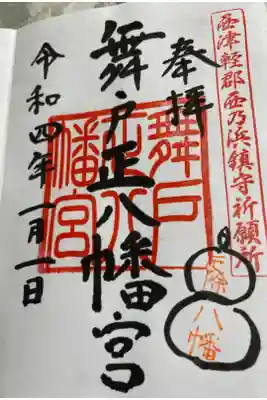 西津軽郡西乃浜鎮守祈願所
奉拝
八幡
舞戸正八幡宮
舞戸
正八
幡宮
令和四年一月一日